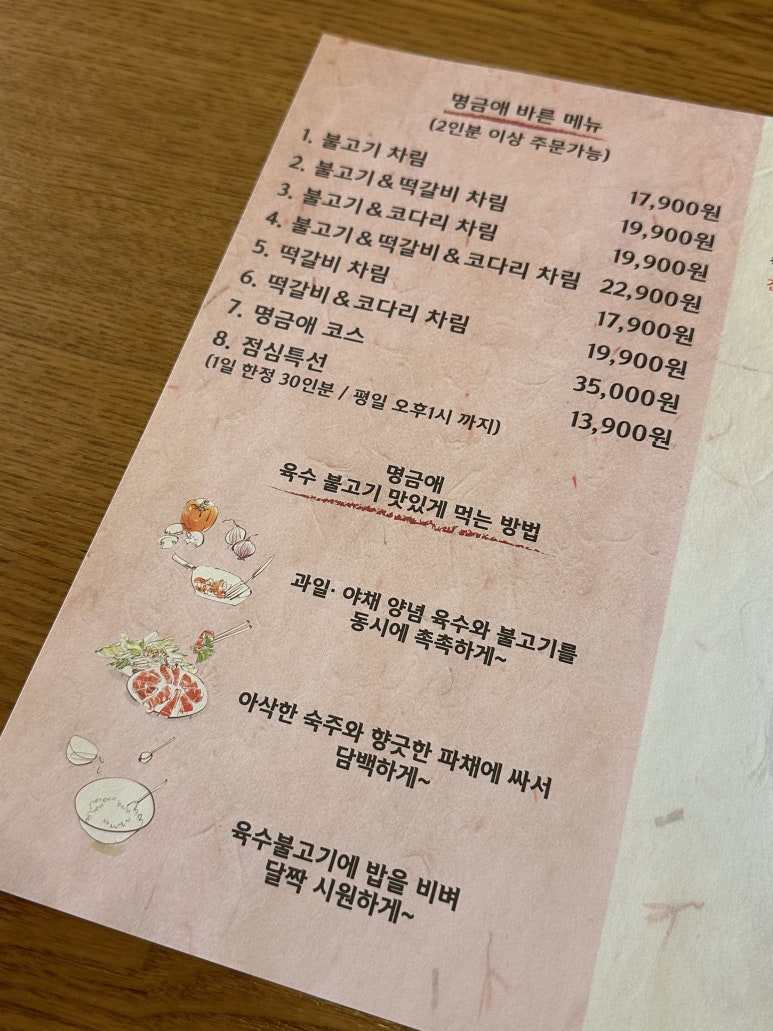 명금애 바른 메뉴
(2인분 이상 주문가능)
1. 불고기 차림 17,900원
2. 불고기&떡갈비 차림 19,900원
3. 불고기&코다리 차림 19,900원
4. 불고기&떡갈비&코다리 차림 22,900원
5. 떡갈비 차림 17,900원
6. 떡갈비&코다리 차림 19,900원
7. 명금애 코스 35,000원
8. 점심특선 13,900원
(1일 한정 30인분 / 평일 오후1시 까지)
명금애
육수 불고기 맛있게 먹는 방법
과일· 야채 양념 육수와 불고기를
동시에 촉촉하게~
아삭한 숙주와 향긋한 파채에 싸서
담백하게~
육수불고기에 밥을 비벼
달짝 시원하게~